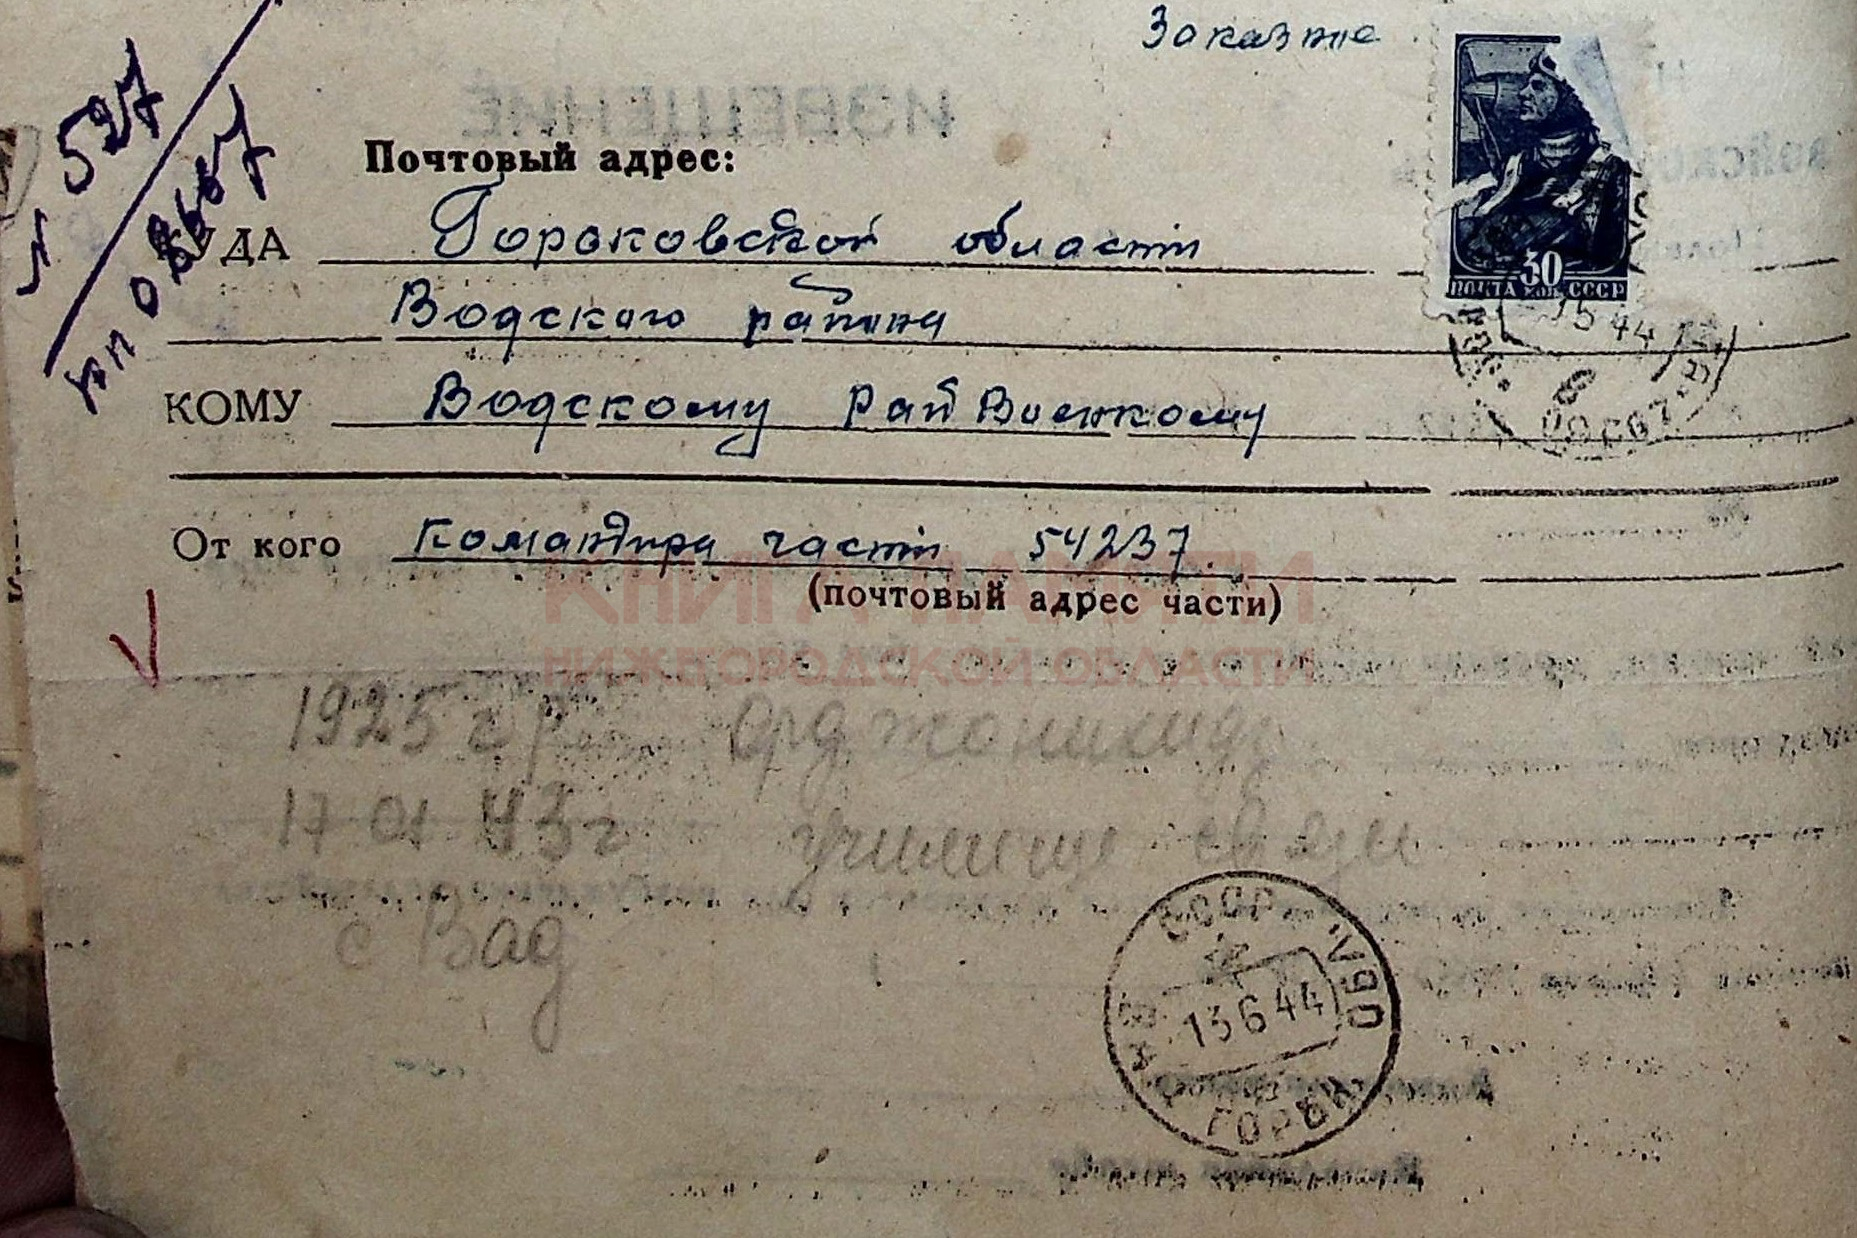 Заказное
№ 527
ИЗВЕЩЕНИЕ
Почтовый адрес:
КУДА Горьковской области
Водского района
КОМУ Водскому РайВоенкому
От кого Командира части 54237
(почтовый адрес части)
КНИГА ПАМЯТИ
НИЖЕГОРОДСКОЙ ОБЛАСТИ
30
ПОЧТА КОП СССР
1925 г р Орджоникидз
17 01 43 г училище связи
с Вад
СССР
13 6 44
ГОРЬК ОБЛ